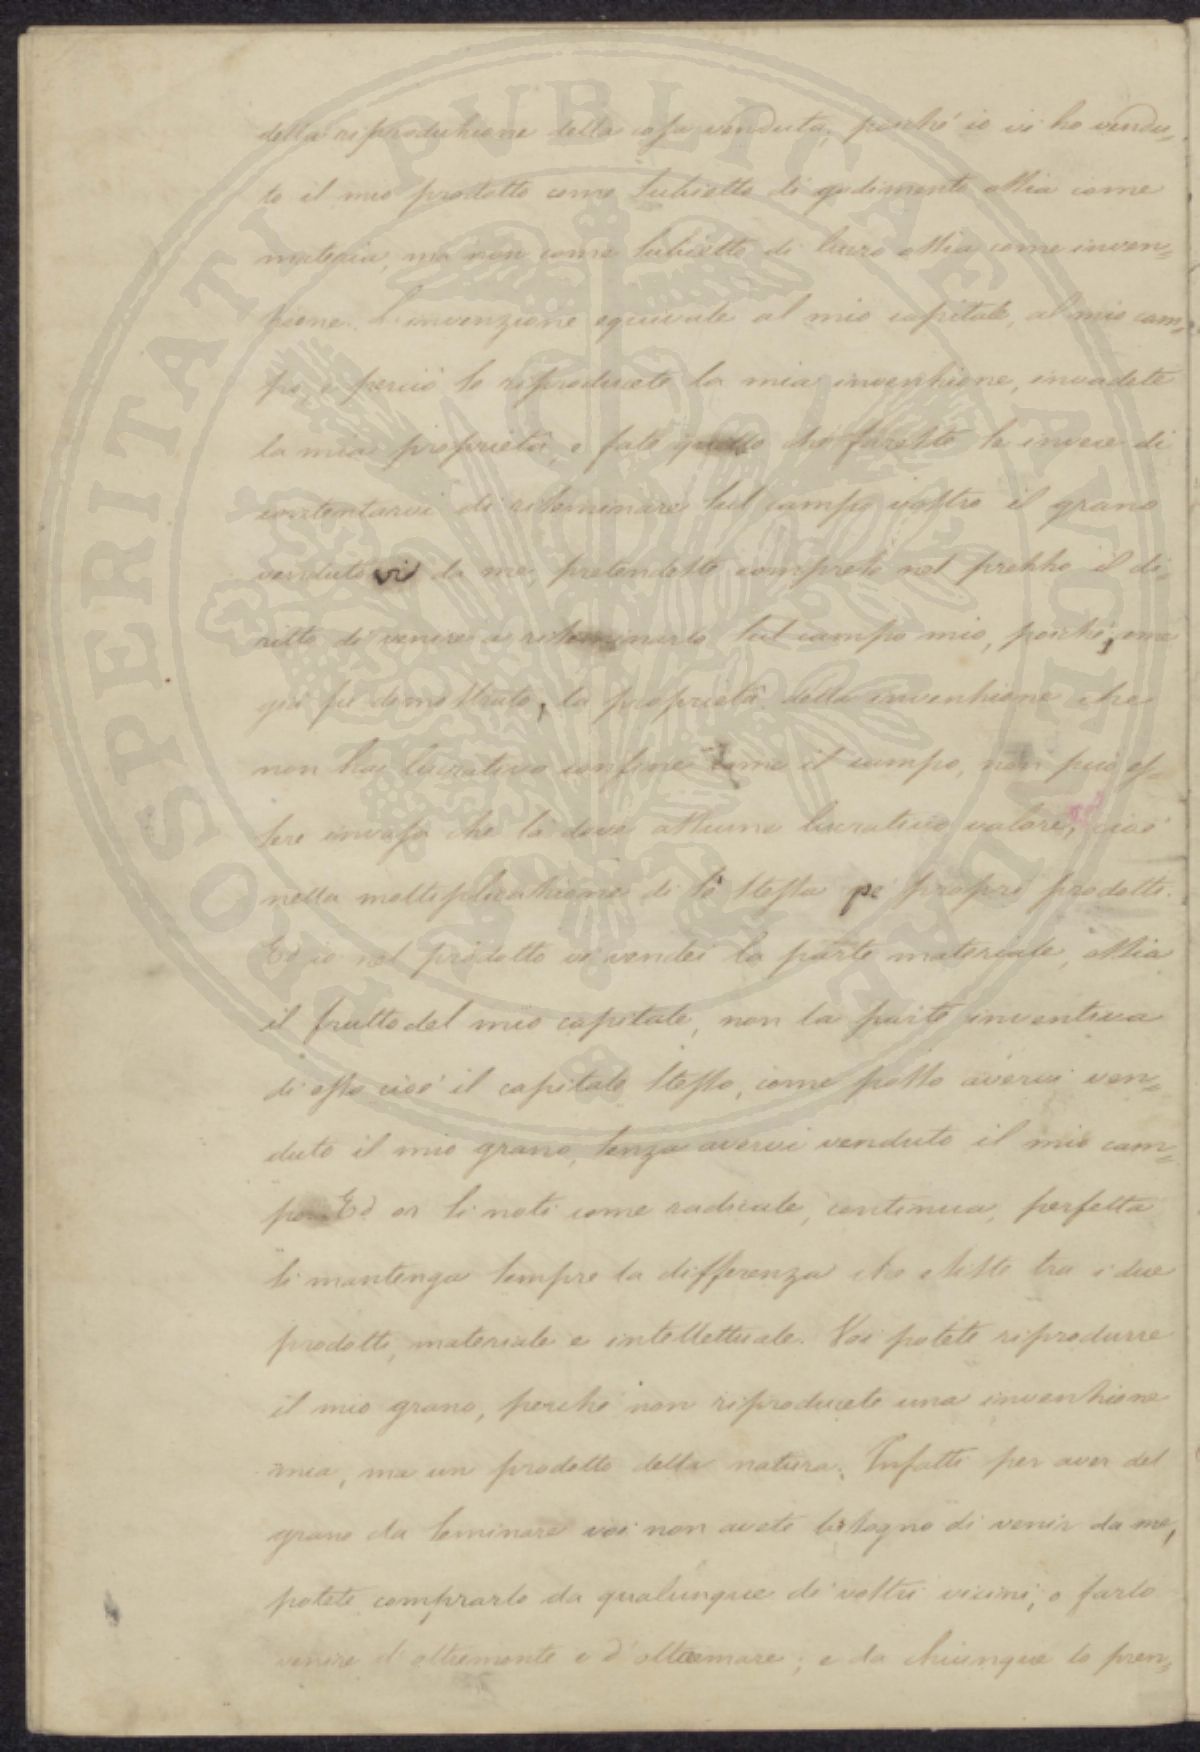 della riproduzione della cosa venduta, perché io vi ho vendu=
to il mio prodotto come subietto di godimento ossia come
materia, ma non come subietto di lucro ossia come inven=
zione. L'invenzione equivale al mio capitale, al mio cam=
po, e perciò se riproducete la mia invenzione, invadete
la mia proprietà, e fate quello che fareste se invece di
contentarvi di riseminare sul campo vostro il grano
vendutovi da me, pretendeste compreso nel prezzo il di=
ritto di venire a riseminarlo sul campo mio, poiché, come
già fu dimostrato, la proprietà della invenzione che
non ha lucrativo confine come il campo, non può es=
sere invasa che là dove assume lucrativo valore, cioè
nella moltiplicazione di sè stessa pei propri prodotti.
Ed io nel prodotto vi vendei la parte materiale, ossia
il frutto del mio capitale, non la parte inventiva
di esso cioè il capitale stesso, come posso avervi ven=
duto il mio grano, senza avervi venduto il mio cam=
po. Ed or si noti come radicale, continua, perfetta
si mantenga sempre la differenza che esiste tra i due
prodotti, materiale e intellettuale. Voi potete riprodurre
il mio grano, perché non riproducete una invenzione
mia, ma un prodotto della natura. Infatti per aver del
grano da seminare voi non avete bisogno di venir da me,
potete comprarlo da qualunque de' vostri vicini, o farlo
venire d'oltremonte e d'oltremare; e da chiunque lo pren=
PROSPERITATI PUBLICAE AUGENDAE